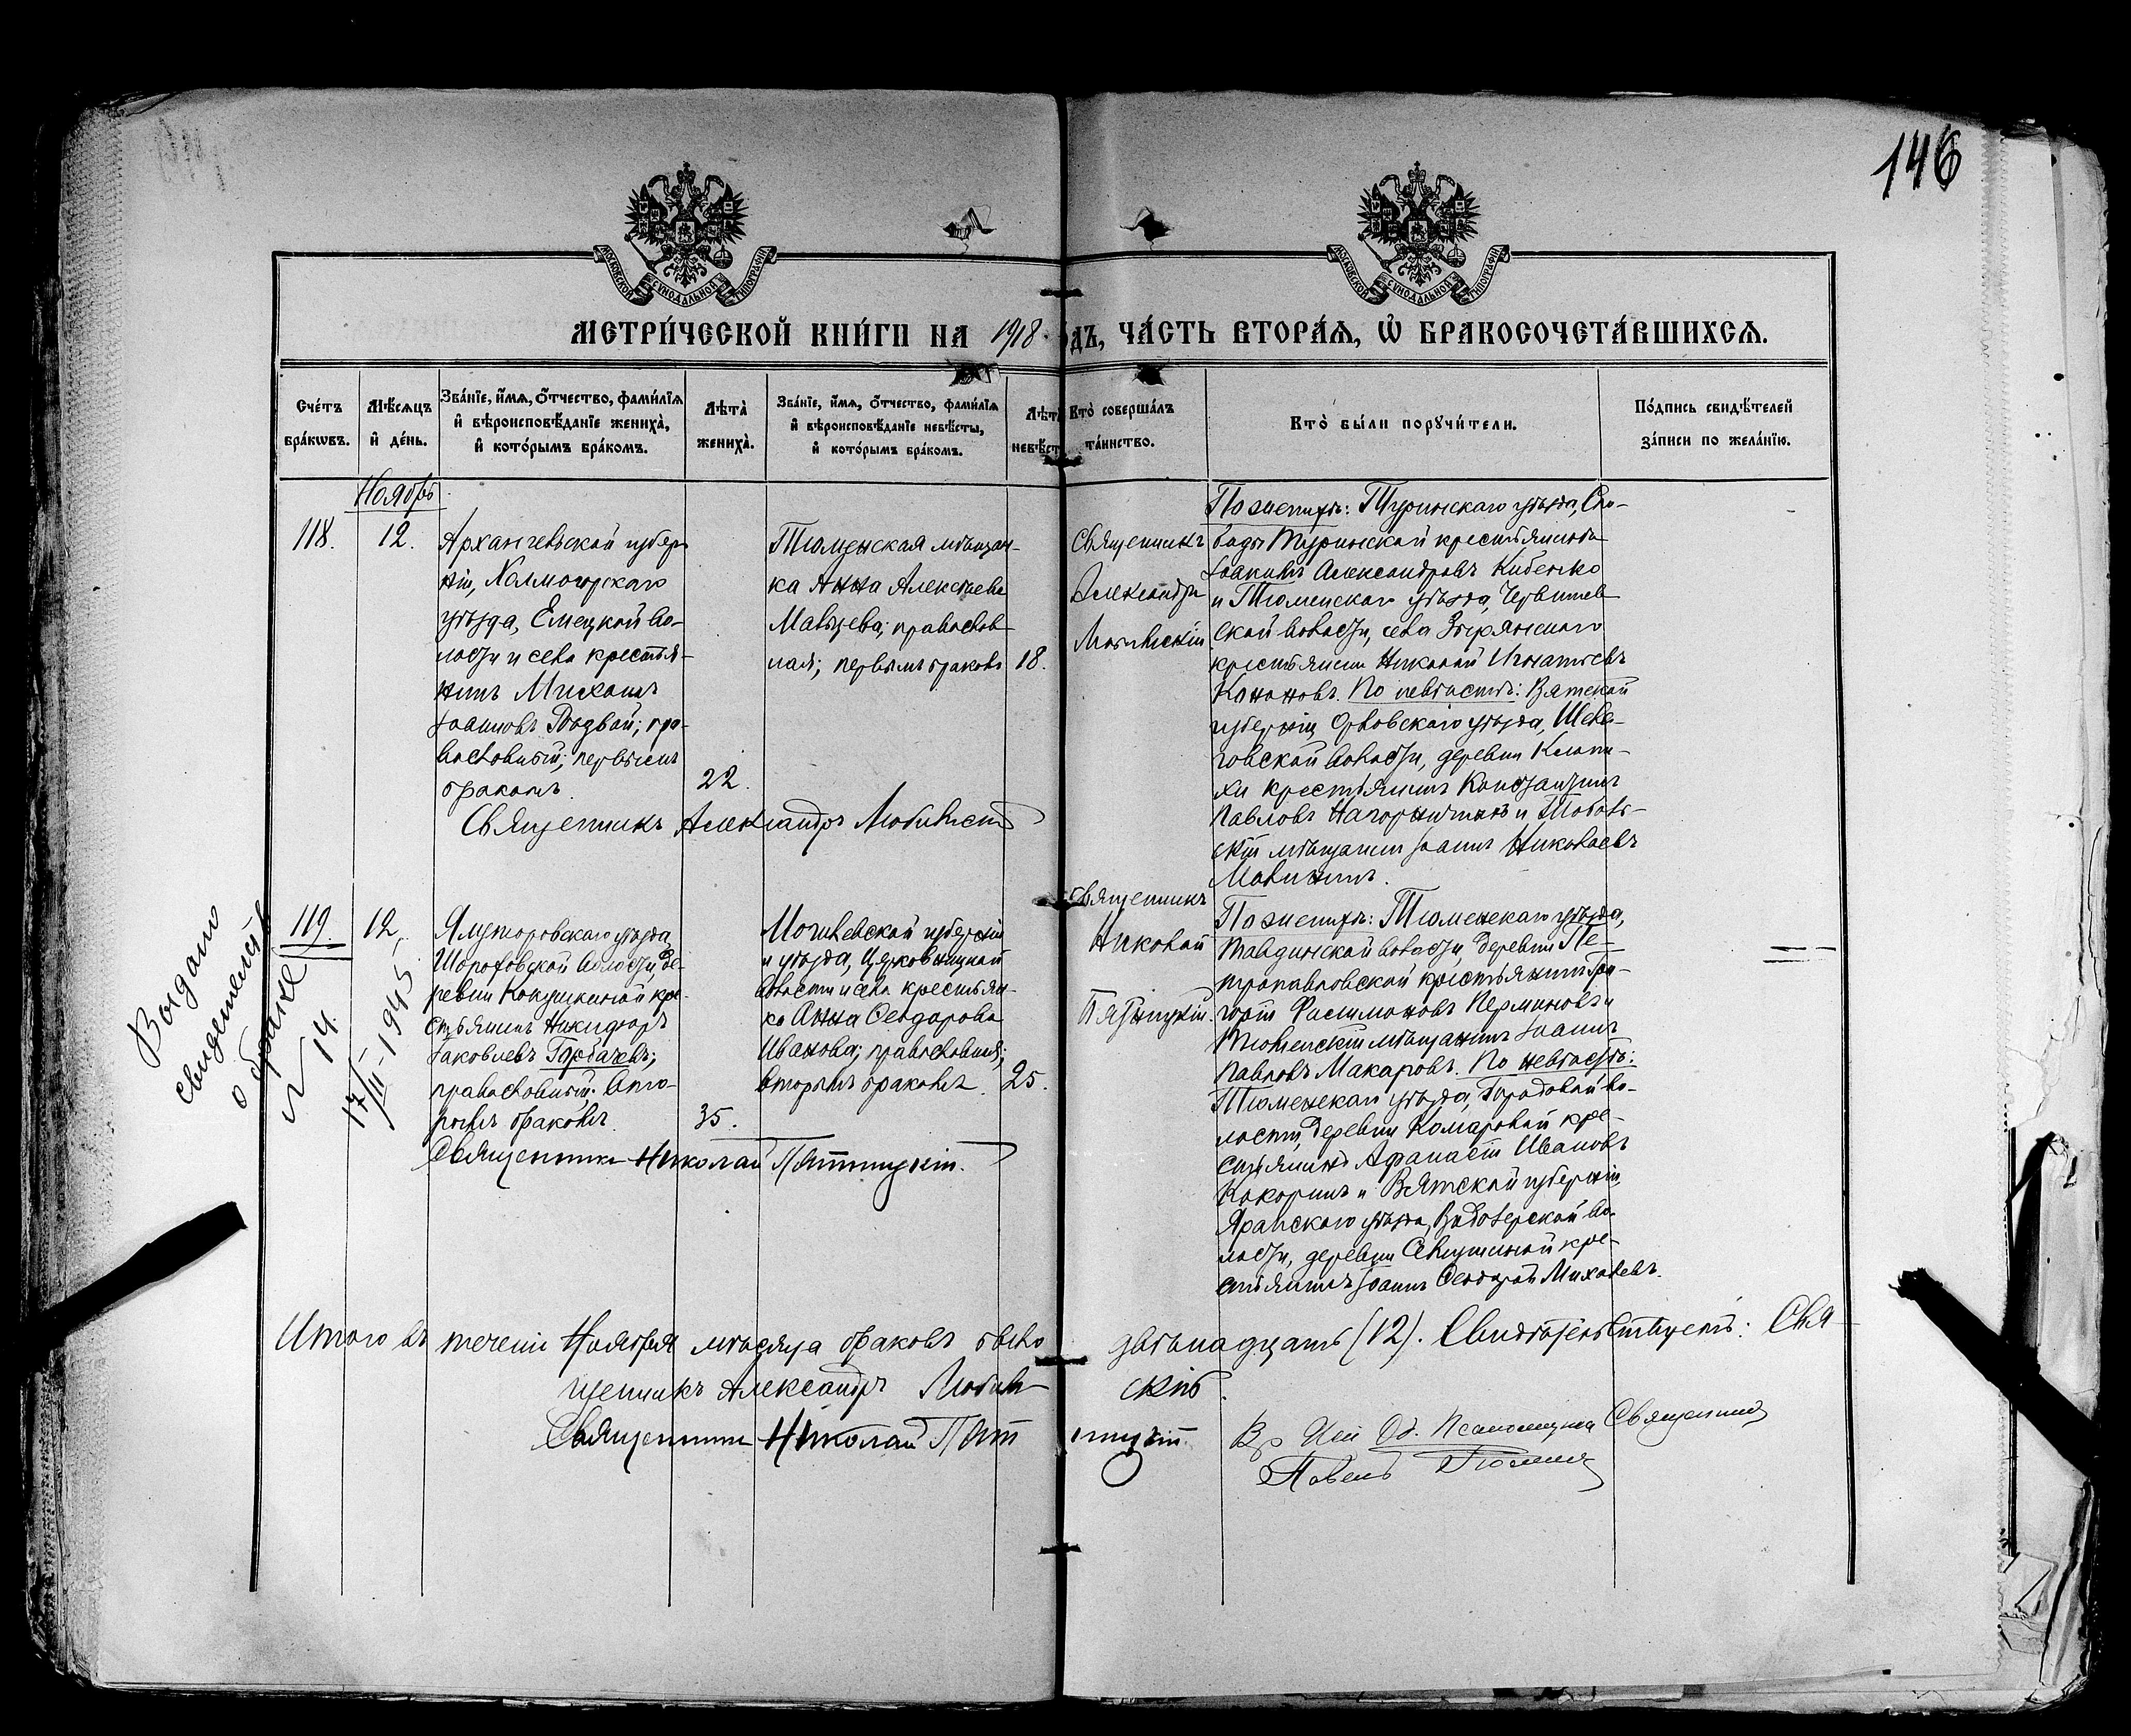 146
МОСКОВСКОЙ СѴНОДАЛЬНОЙ ТИПОГРАФІИ
МОСКОВСКОЙ СѴНОДАЛЬНОЙ ТИПОГРАФІИ
МЕТРИ́ЧЕСКОЙ КНИ́ГИ НА 1918 ДЪ, ЧА́СТЬ ВТОРА́Я, Ѡ҆ БРАКОСОЧЕТА́ВШИХСЯ.
Сче́тъ
бра́кѡвъ.
Мѣ́сяцъ
и҆ де́нь.
Зва́нїе, и҆́мя, ѻ҆́тчество, фами́лїя
и҆ вѣроисповѣ́данїе жениха̀,
и҆ кото́рымъ бра́комъ.
Лѣта̀
жениха̀.
Зва́нїе, и҆́мя, ѻ҆́тчество, фами́лїя
и҆ вѣроисповѣ́данїе невѣ́сты,
и҆ кото́рымъ бра́комъ.
Лѣта̀
невѣ́ст
Кто̀ соверша́лъ
та́инство.
Кто̀ бы́ли порꙋчи́тели.
По́дпись свидѣ́телей
за́писи по жела́нїю.
Ноябрь
118.
12.
Архангельской губер
ніи, Холмогорскаго
уѣзда, Емецкой во-
лости и села крестья-
нинъ Михаилъ
Іоанновъ; пра-
вославный; первымъ
бракомъ.
22.
Тюменская мѣщан-
ка Анна Алексѣева
Мальцева; православ
ная; первымъ бракомъ
18.
Священникъ
Александръ
По женихѣ: Туринскаго уѣзда, Сло-
боды Туринской крестьянинъ
Іоакимъ Александровъ
и Тюменскаго уѣзда, Червишев
ской волости, села Зырянскаго
крестьянинъ Николай Игнатьевъ
Кононовъ. По невѣстѣ: Вятской
губерніи Орловскаго уѣзда,
говской волости, деревни
хи крестьянинъ Константинъ
Павловъ и Тоболь-
скій мѣщанинъ Іоаннъ Николаевъ
Священникъ Александръ
119.
12.
Ялуторовскаго уѣзда
Шороховской волости, де-
ревни Кокушкиной кре-
стьянинъ Никифоръ
Іаковлевъ Горбачевъ;
православный; вто-
рымъ бракомъ.
35.
Могилевской губерніи
и уѣзда,
волости и села крестьян-
ка Анна Сеодорова
Иванова; православная;
вторымъ бракомъ.
25.
Священникъ
Николай
Пятницкій.
По женихѣ: Тюменскаго уѣзда,
Тавдинской волости, деревни Пе-
тропавловской крестьянинъ Гри-
горій Филимоновъ Перминовъ и
Тюменскій мѣщанинъ Іоаннъ
Павловъ Макаровъ. По невѣстѣ:
Тюменскаго уѣзда, Городовой во-
лости, деревни Комаровой кре-
стьянинъ Афанасій Ивановъ
Кокоринъ и Вятской губерніи,
Яранскаго уѣзда, во-
лости, деревни кре-
стьянинъ Іоаннъ Сеодоровъ Михалевъ.
Священникъ Николай Пятницкій.
Выдано
свидетельств
о браке
N 14.
17/II-1945
Итого въ теченіи Ноября мѣсяца браковъ было двѣнадцать (12). Свидѣтельствуетъ: Свя-
щенникъ Александръ
Священникъ Николай Пятницкій.
Вр Псаломщика Священник
Павелъ